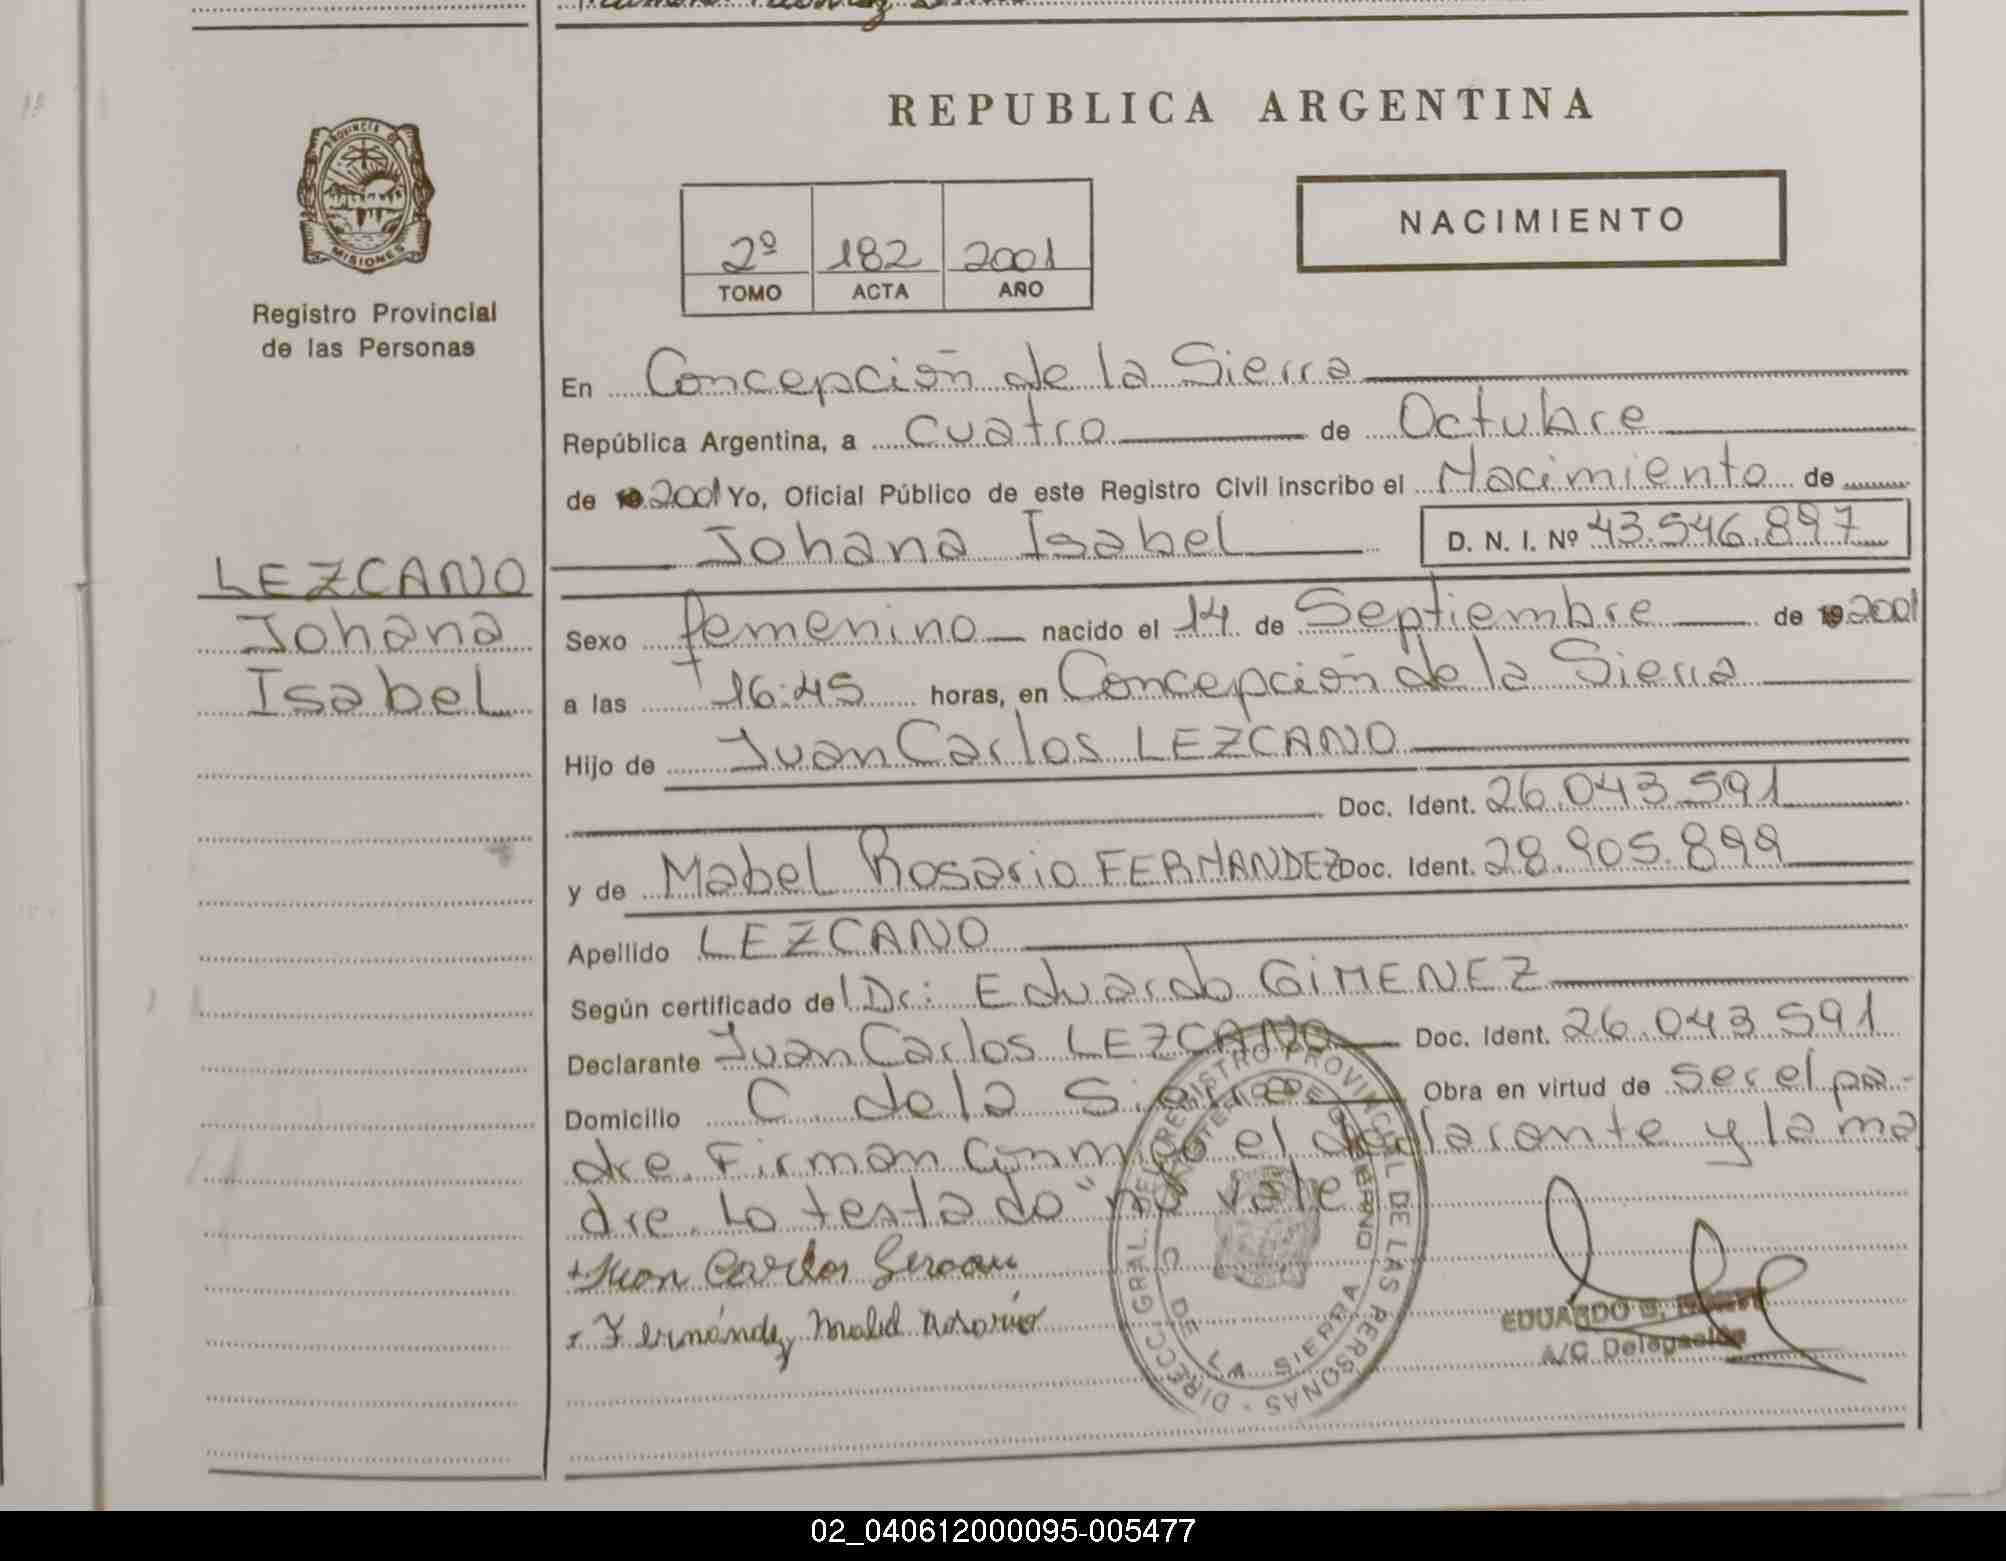 REPUBLICA ARGENTINA
PROVINCIA DE MISIONES
Registro Provincial
de las Personas
2º 182 2001
TOMO ACTA AÑO
NACIMIENTO
En Concepción de la Sierra
República Argentina, a cuatro de Octubre
de 2001 Yo, Oficial Público de este Registro Civil inscribo el Nacimiento de
Johana Isabel D. N. I. Nº 43.546.897
LEZCANO
Johana
Isabel
Sexo femenino nacido el 14 de Septiembre de 192001
a las 16:45 horas, en Concepción de la Sierra
Hijo de Juan Carlos LEZCANO
Doc. Ident. 26.043.591
y de Mabel Rosario FERNANDEZ Doc. Ident. 28.905.899
Apellido LEZCANO
Según certificado del Dr: Eduardo GIMENEZ
Declarante Juan Carlos LEZCANO Doc. Ident. 26.043.591
Domicilio C. de la Sierra Obra en virtud de ser el pa-
dre. Firman conmigo el declarante y la ma
dre. Lo testado "no vale
Juan Carlos
Fernández Mabel Rosario
DIRECC. GRAL. DE REGISTRO PROVINCIAL DE LAS PERSONAS
MINISTERIO DE GOBIERNO
C. DE LA SIERRA
EDUARDO
A/C Delegación
02_040612000095-005477